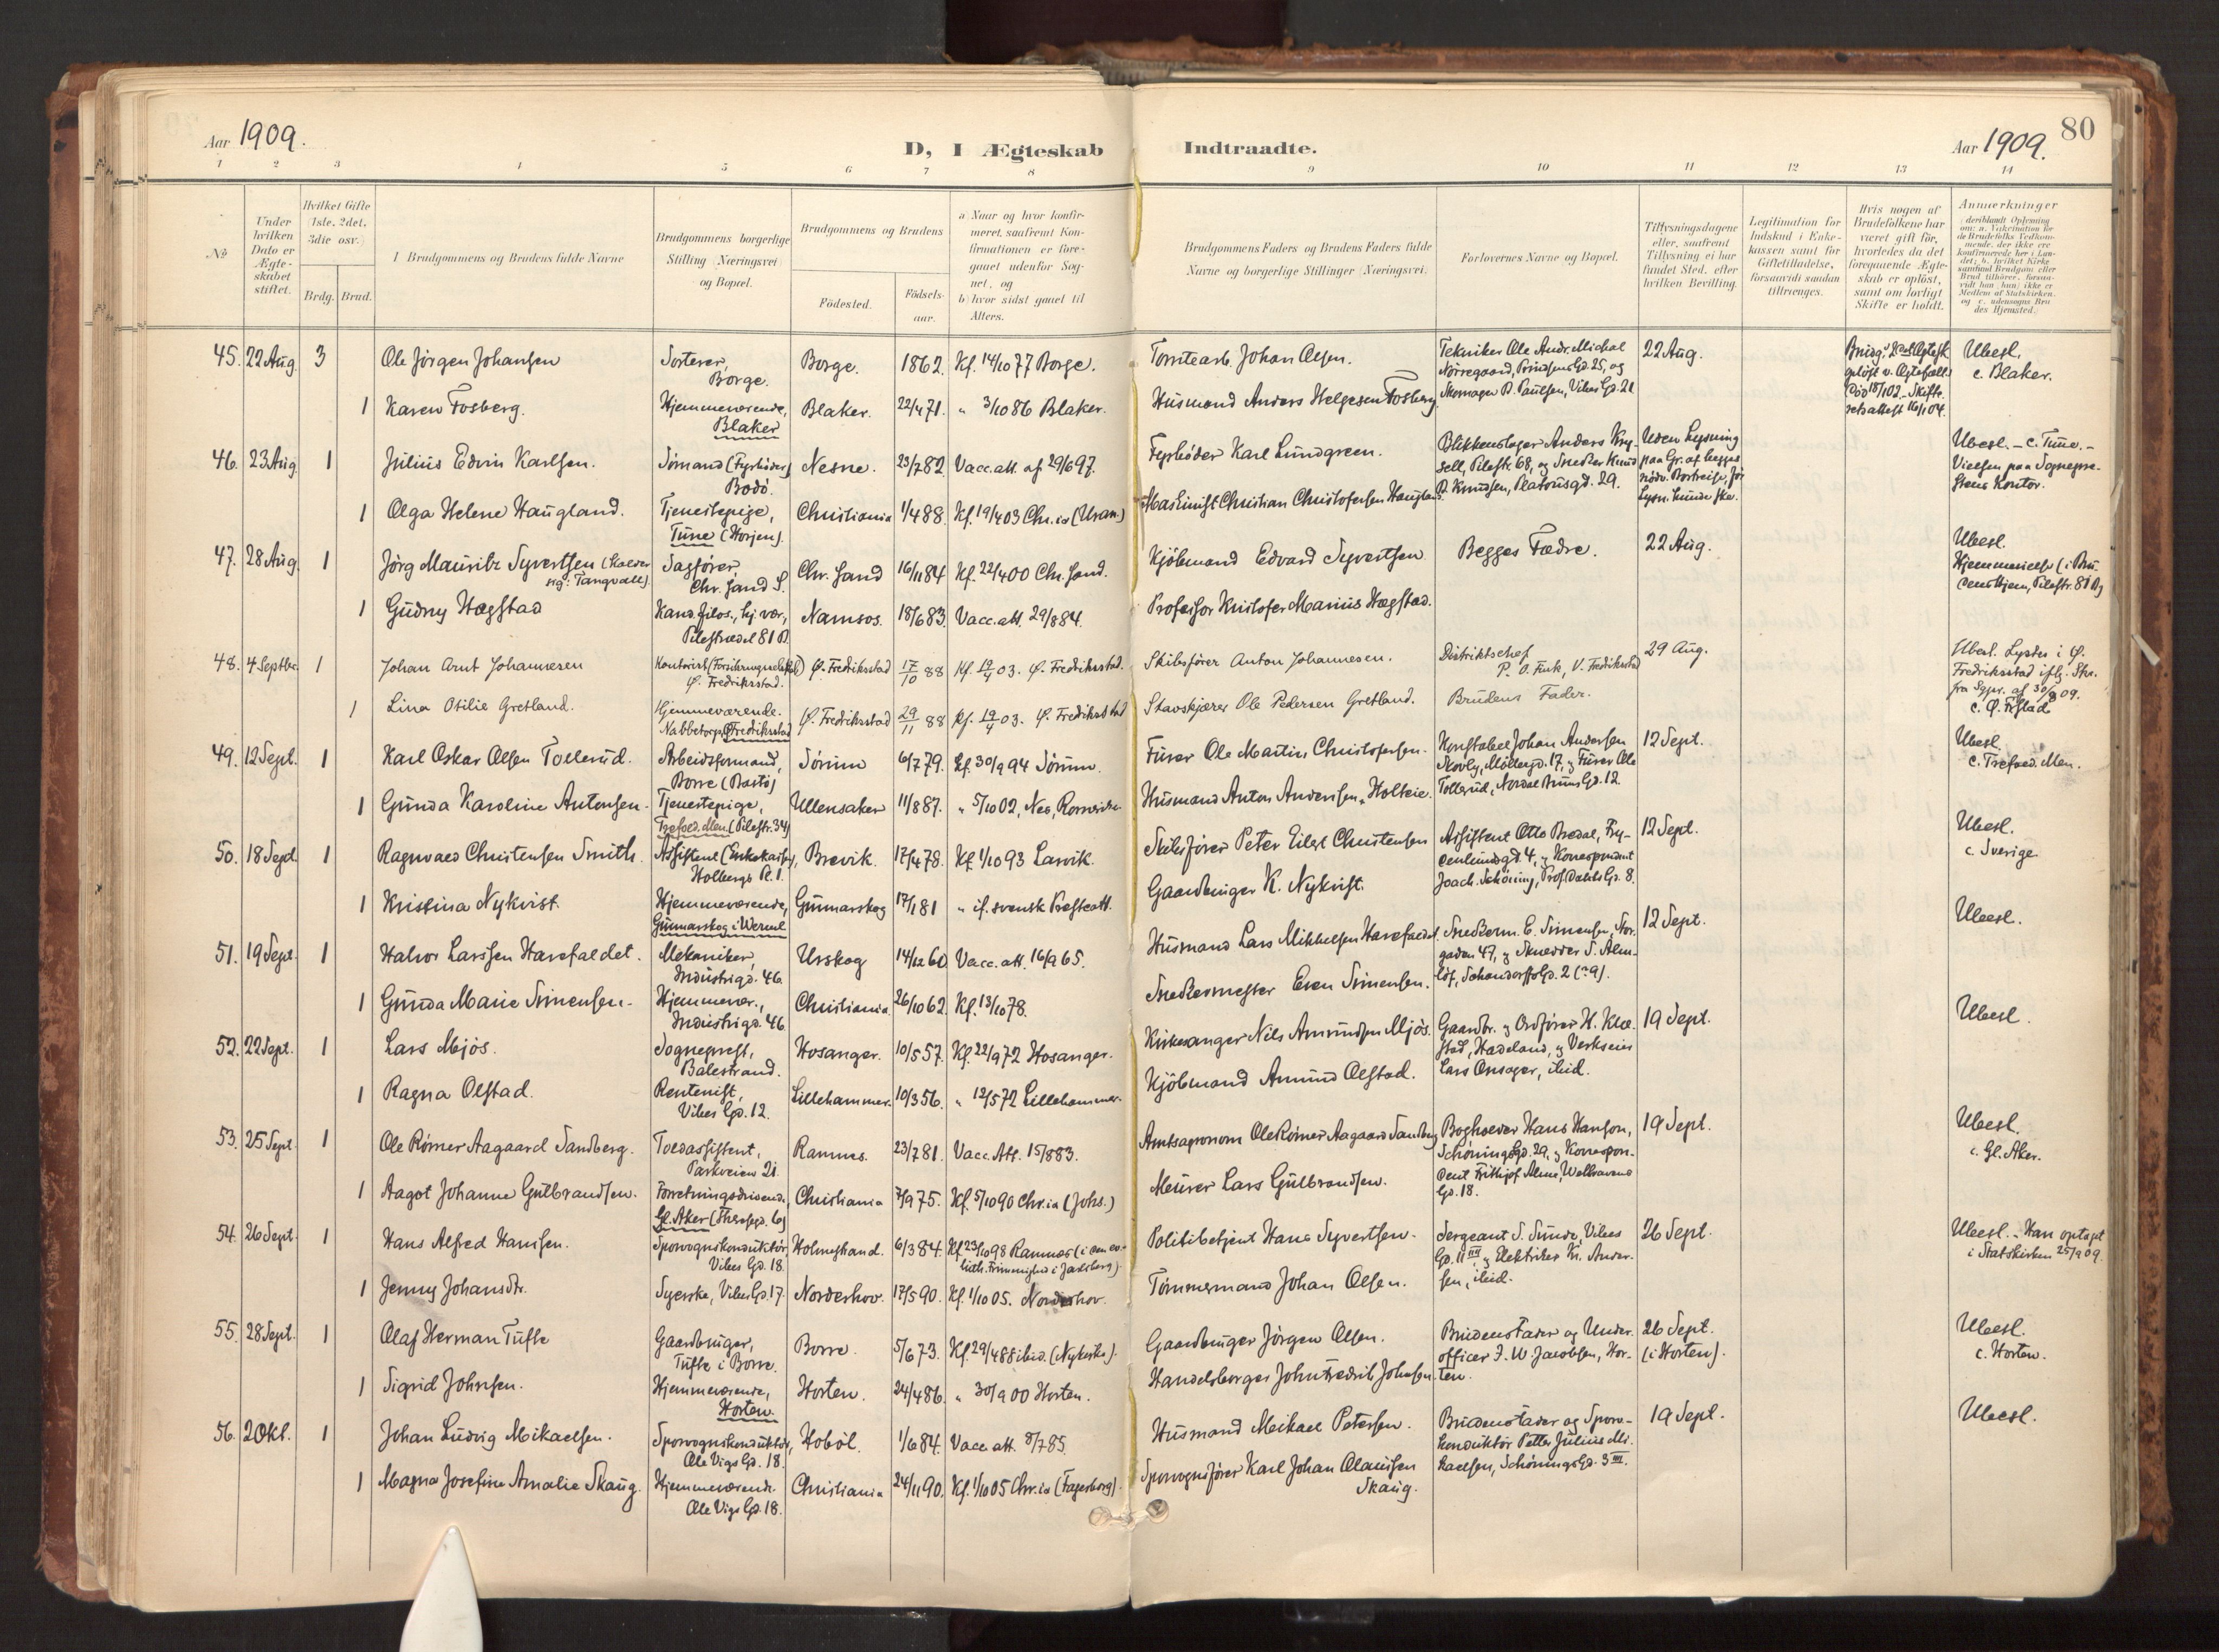 80
Aar 1909.
D, I Ægteskab Indtraadte.
Aar 1909.
1 2 3 4 5 6 7 8 9 10 11 12 13 14
No
Under hvilken Dato er Ægteskabet stiftet.
Hvilket Gifte (1ste, 2det, 3die osv.)
Brdg. Brud.
Brudgommens og Brudens fulde Navne
Brudgommens borgerlige Stilling (Næringsvei) og Bopæl.
Brudgommens og Brudens
Födested.
Födselsaar.
a) Naar og hvor konfirmeret, saafremt Konfirmationen er foregaaet udenfor Sognet, og
b) hvor sidst gaaet til Alters.
Brudgommens Faders og Brudens Faders fulde Navne og borgerlige Stillinger (Næringsvei).
Forlovernes Navne og Bopæl.
Tillysningsdagene eller, saafremt Tillysning ei har fundet Sted, efter hvilken Bevilling.
Legitimation for Indskud i Enkekassen samt for Giftetilladelse, forsaavidt saadan tiltrænges.
Hvis nogen af Brudefolkene har været gift för, hvorledes da det foregaaende Ægteskab er oplöst, samt om lovligt Skifte er holdt.
Anmærkninger
(deriblandt Oplysning om: a. Vakcination for de Brudefolks Vedkommende, der ikke ere konfirmerede her i Landet; b. hvilket Kirkesamfund Brudgom eller Brud tilhörer, forsaavidt han (hun) ikke er Medlem af Statskirken, og c. udensogns Brudes Hjemsted.)
45. 22 Aug. 3 Ole Jörgen Johansen Sorterer, Borge. Borge. 1862. Kf. 14/10 77 Borge. Tomtearb. Johan Olsen. Tekniker Ole Andr. Michal Nörregaard, Prindsens Gd. 25, og Skomager P. Paulsen, Vibes Gd. 21 22 Aug. Ubesl. c. Blaker.
1 Karen Fosberg. Hjemmeværende, Blaker Blaker. 22/4 71. " 3/10 86 Blaker. Husmand Anders Helgesen Fosberg
46. 23 Aug 1 Julius Edvin Karlsen. Sömand (Fyrböder) Bodö. Nesne. 23/7 82. Vacc. att. af 29/6 97. Fyrböder Karl Lundgreen. Blikkenslager Anders Krysell, Pilestr. 68, og Snedker Knud P. Knudsen, Platousgd. 29. Uden Lysning paa Gr. af begges nödv. Bortreise, för Lysn. kunde ske. Ubesl. - c. Tune. - Vielsen paa Sognepræstens Kontor.
1 Olga Helene Haugland. Tjenestepige, Tune (Horjen). Christiania 1/4 88. Kf. 19/4 03 Chr.ia (Uran.) Maskinist Christian Christofersen Haugland.
47. 28 Aug. 1 Jörg Mauritz Syvertsen (kalder sig: Tangvall). Sagförer, Chr. Sand S. Chr. Sand 16/11 84 Kf. 22/4 00 Chr. Sand. Kjöbmand Edvard Syvertsen Begges Fædre. 22 Aug. Ubesl. Hjemmevielse (i Brudens Hjem, Pilestr. 81 B)
1 Gudny Hægstad Kand. filos., hj. vær, Pilestrædet 81 B. Namsos. 18/6 83. Vacc. att. 29/8 84. Professor Kristofer Marius Hægstad.
48. 4 Septbr. 1 Johan Arnt Johannesen Kontorist (Forsikringsselskab) Ö. Fredriksstad. Ö. Fredriksstad 17/10 88 Kf. 19/4 03. Ö. Fredriksstad. Skibsförer Anton Johannesen. Distriktschef P. O. Funk, V. Fredriksstad 29 Aug. Ubesl. Lyster i Ö. Fredriksstad iflg. Skr. fra Sgpr. af 30/8 09. c. Ö. F.stad
1 Lina Otilie Gretland. Hjemmeværende. Nabbetorp, Ö. Fredriksstad Ö. Fredriksstad 29/11 88 Kf. 19/4 03. Ö. Fredriksstad Stavskjærer Ole Pedersen Gretland. Brudens Fader.
49. 12 Sept. 1 Karl Oskar Olsen Tollerud. Arbeidsformand, Borre (Bastö) Sörum 6/7 79. Kf. 30/9 94 Sörum. Furer Ole Martin Christofersen. Konstabel Johan Andersen Skovly, Möllergd. 17, og Furer Ole Tollerud, Nordal Bruns Gd. 12. 12 Sept. Ubesl. c. Trefold. Men.
1 Gunda Karoline Antonsen. Tjenestepige, Trefold. Men. (Pilestr. 34) Ullensaker 11/8 87. " 5/10 02, Nes, Romerike Husmand Anton Andersen Holteie.
50. 18 Sept. 1 Ragnvald Christensen Smith. Assistent (Enkekassen), Holbergs Pl. 1. Brevik. 17/4 78. Kf. 1/10 93 Larvik. Skibsförer Peter Eilert Christensen Assistent Otto Bredal, Frydenlundsgd. 4, og Korrespondent Joach. Schöning, Prof. Dahls Gd. 8. 12 Sept. Ubesl. c. Sverige
1 Kristina Nykvist. Hjemmeværende, Gunnarskog i Werml. Gunnarskog 17/1 81 " if. svensk Presteatt. Gaardbruger K. Nykvist.
51. 19 Sept. 1 Halvor Larssen Harefaldet. Mekaniker, Industrigd. 46. Urskog 14/12 60 Vacc. att. 16/9 65. Husmand Lars Mikkelsen Harefaldet. Snedkerm. E. Simensen, Storgaden 47, og Skredder S. Almlöf, Schandorffs Gd. 2 (a 9). 12 Sept. Ubesl.
1 Gunda Marie Simensen. Hjemmevær., Industrigd. 46. Christiania. 26/10 62. Kf. 13/10 78. Snedkermester Even Simensen.
52. 22 Sept. 1 Lars Mjös. Sogneprest, Balestrand. Hosanger. 10/5 57. Kf. 22/9 72 Hosanger. Kirkesanger Nils Amundsen Mjös. Gaardbr. og Ordförer H. Klæstad, Hadeland, og Verkseier Lars Onsager, ibid. 19 Sept. Ubesl.
1 Ragna Olstad. Rentenist, Vibes Gd. 12. Lillehammer. 10/3 56. " 12/5 72 Lillehammer. Kjöbmand Amund Olstad.
53. 25 Sept. 1 Ole Römer Aagaard Sandberg. Toldassistent, Parkveien 21. Ramnes. 23/7 81. Vacc. Att. 15/8 83. Amtsagronom Ole Römer Aagaard Sandberg Bogholder Hans Hanson, Schönings Gd. 29, og Korrespondent Frithjof Alme, Welhavens Gd. 18. 19 Sept. Ubesl. c. Gl. Aker.
1 Aagot Johanne Gulbrandsen. Forretningsdrivende, Gl. Aker (Theresegd. 6) Christiania 7/9 75. Kf. 5/10 90 Chr.ia (Johs.) Murer Lars Gulbrandsen.
54. 26 Sept. 1 Hans Alfred Hansen. Sporvognskonduktör, Vibes Gd. 18. Holmestrand. 6/3 84. Kf. 23/10 98 Ramnes (i den ev. luth. Frimenighed i Jarlsberg). Politibetjent Hans Syvertsen. Sergeant S. Sunde, Vibes Gd. 11 III, og Elektriker Kr. Andersen, ibid. 26 Sept. Ubesl. - Han optaget i Statskirken 25/9 09.
1 Jenny Johansdtr. Syerske, Vibes Gd. 17. Norderhov. 17/5 90. Kf. 1/10 05. Norderhov. Tömmermand Johan Olsen.
55. 28 Sept. 1 Olaf Herman Tufte Gaardbruger, Tufte i Borre. Borre. 5/6 73. Kf. 29/4 88 ibid. (Nykirke). Gaardbruger Jörgen Olsen. Brudens Fader og Underofficer J. W. Jacobsen, Horten. 26 Sept. (i Horten). Ubesl. c. Horten.
1 Sigrid Johnsen. Hjemmeværende, Horten. Horten. 24/4 86. " 30/9 00 Horten. Handelsborger John Fredrik Johnsen.
56. 2 Okt. 1 Johan Ludvig Mikaelsen. Sporvognskonduktör, Ole Vigs Gd. 18. Hoböl. 1/6 84. Vacc. att. 8/7 85. Husmand Meikael Petersen. Brudens Fader og Sporv.konduktör Petter Julius Mikaelsen, Schönings Gd. 3 III. 19 Sept. Ubesl.
1 Magna Josefine Amalie Skaug. Hjemmeværende. Ole Vigs Gd. 18. Christiania 24/11 90. Kf. 1/10 05 Chr.ia (Fagerborg). Sporvognsförer Karl Johan Olausen Skaug.